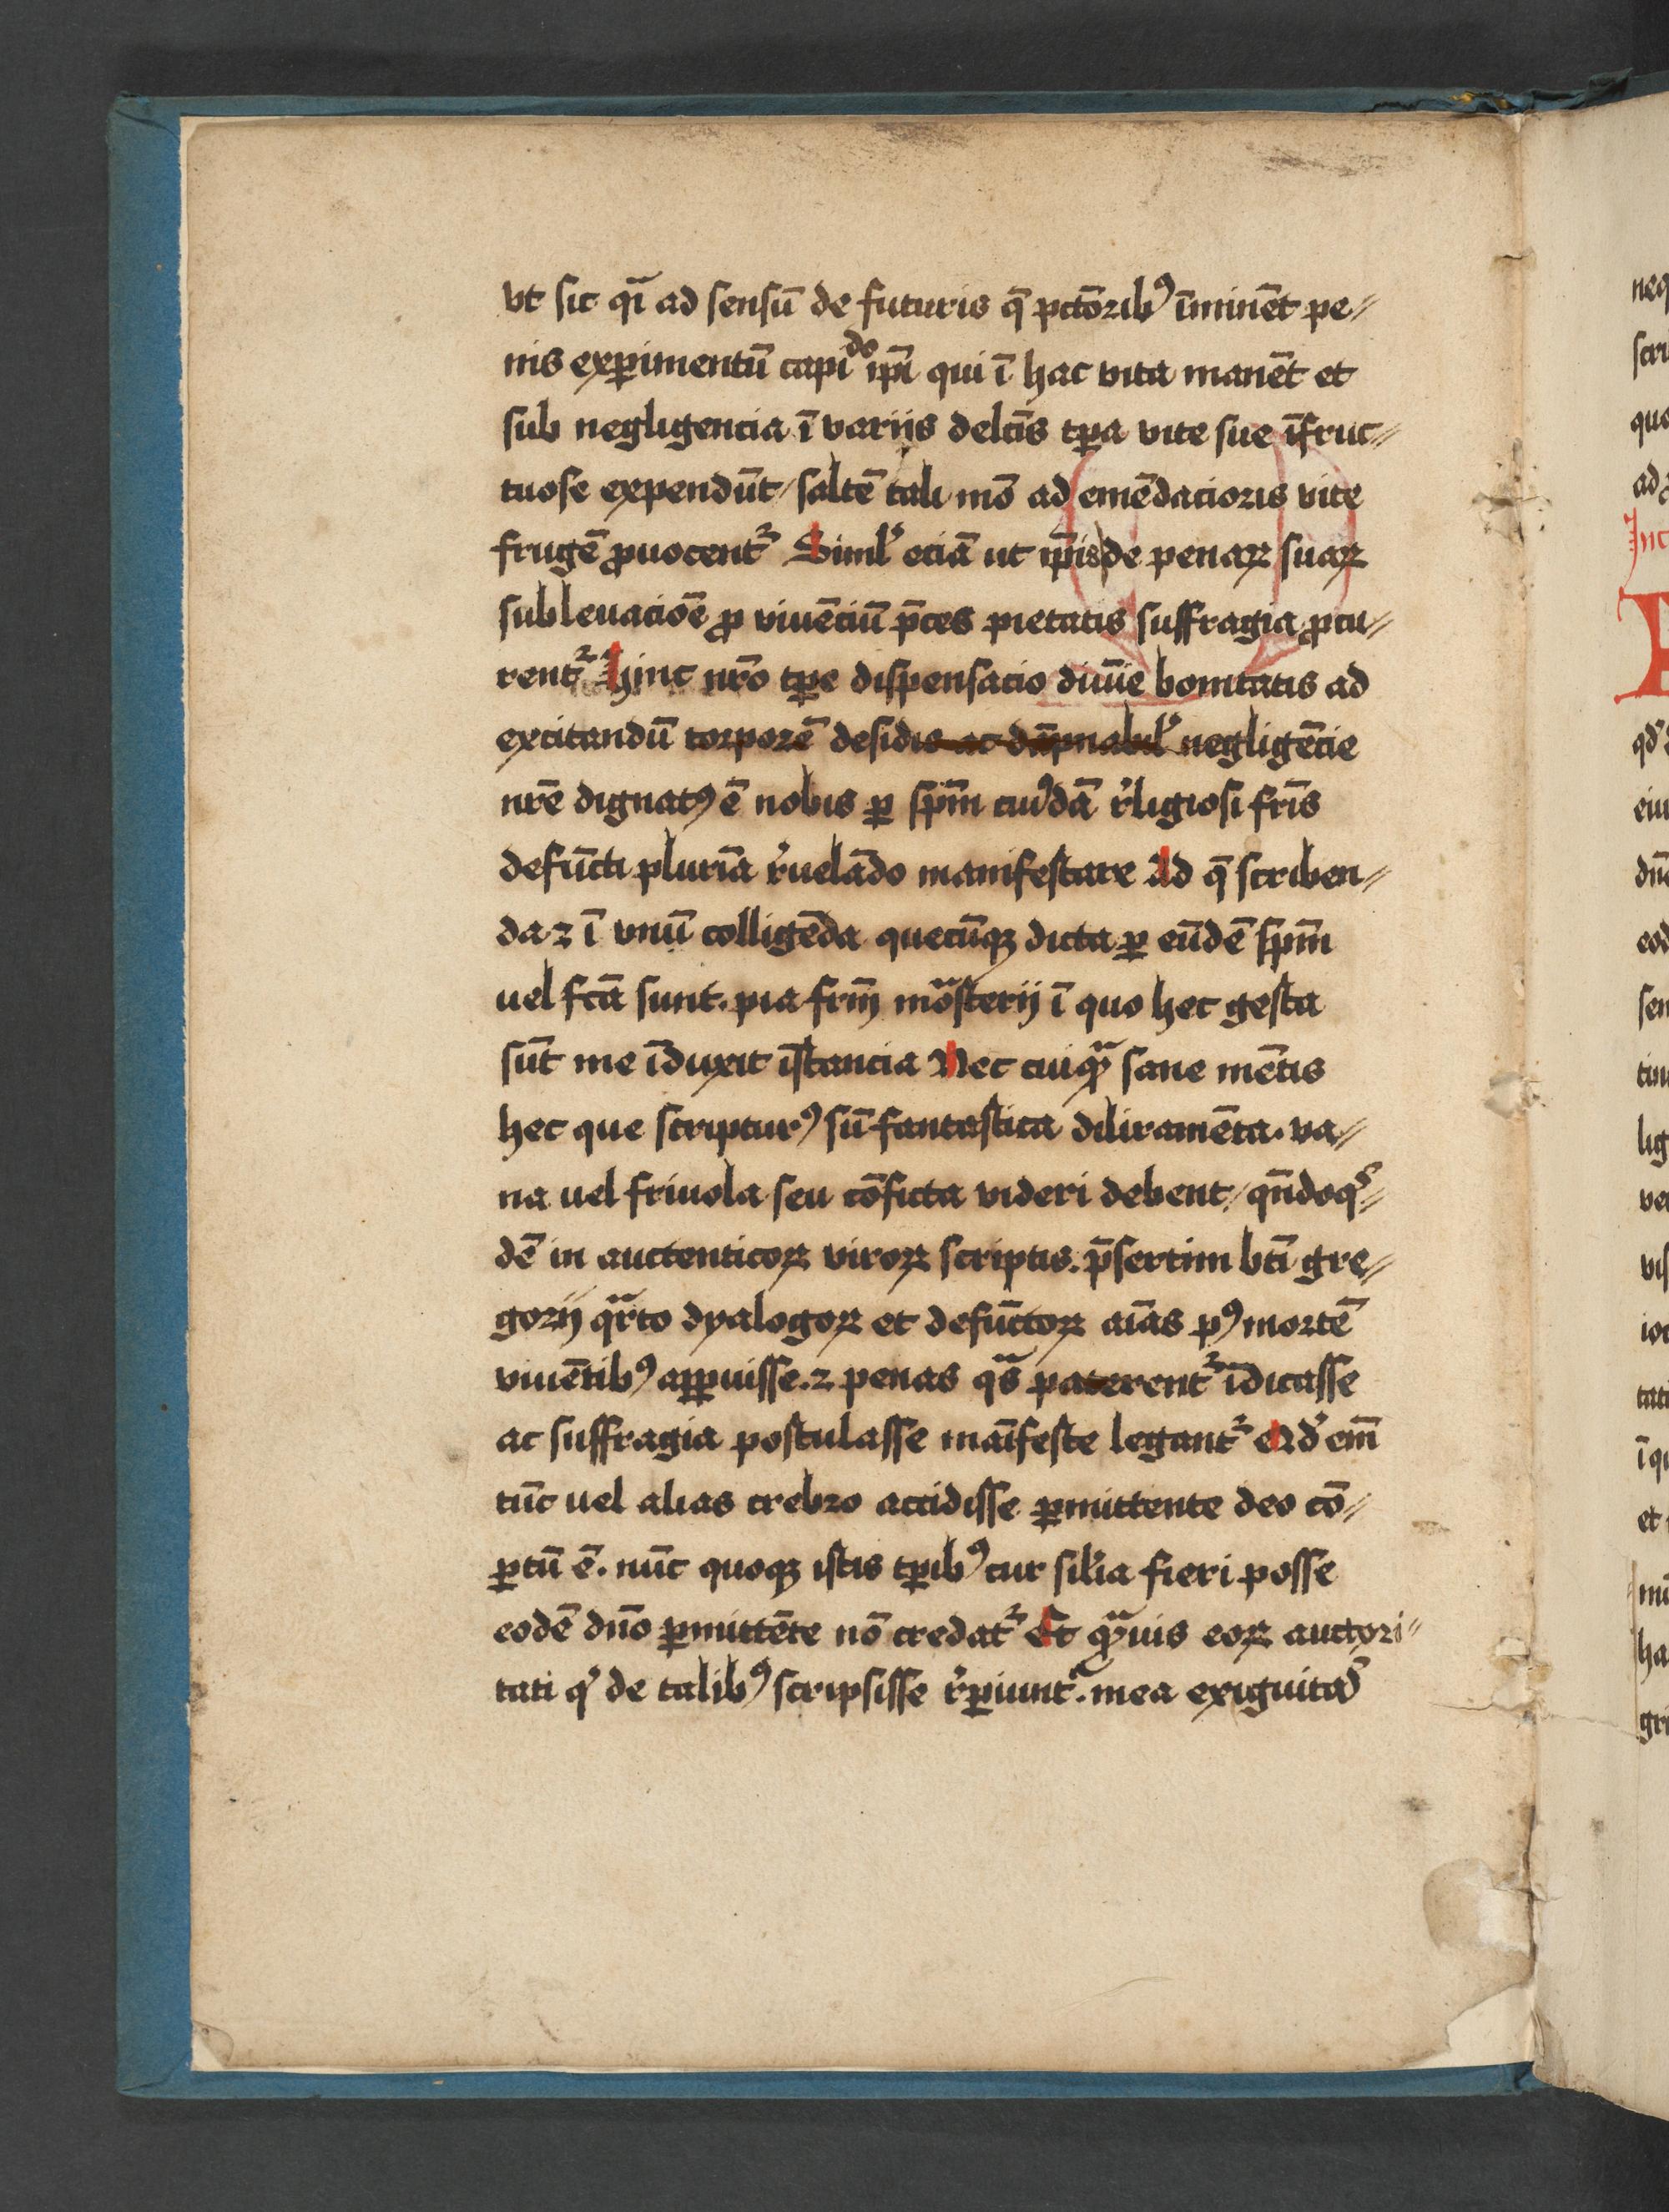 vt sic qͣi ad sensū de futuris q̄ pctōribꝫ īminēt pe⸗
nis exꝑimentū capīdo ip̄i qui ī hac vita manēt et
sub negligencia ī variis delc̄īs tꝑa vite sue īfruc⸗
tuose expendūt / saltē tali mō ad emēdacioris vite
frugē ꝓuocentᷣ Similʼ eciā ut ip̄is de penaꝝ suaꝝ
subleuacioē ꝓ viuēciū p̄ces pietatis suffragia ꝓcu⸗
rentᷣ hinc nr̄o tꝑe dispensacio diuīe bonitatis ad
excitandū torporē desidis ac dāpnabilʼ negligēcie
nrē dignatꝰ ē nobis ꝑ sp̄m cuiꝰdā rʼligiosi fr̄is
defūcti plurīa rʼuelādo manifestare Ad q̄ scriben⸗
da ⁊ ī vnū colligēda quecūqꝫ dicta ꝑ eūdē sp̄m
uel fc̄a sunt. pia frm̄ mōͣsterij ī quo hec gesta
sūt me īduxit īstancia Nec cuiqͣꝫ sane mētis
hec que scripturꝰ sū fantastica diliramēta. va⸗
na uel friuola seu cōficta videri debent / qn̄doqͥ⸗
dē in auctenticoꝝ viroꝝ scriptis. p̄sertim bt̄i gre⸗
gorij qͣrto dyalogoꝝ et defūctoꝝ aīas pꝰ mortē
viuētibꝰ apꝑuisse. ⁊ penas qͣs paterentᷣ īdicasse
ac suffragia postulasse maīfeste legantᷣ Qd' em̄
tūc uel alias crebro accidisse ꝑmittente deo cō⸗
ꝑtū ē. nūc quoqꝫ istis tꝑibꝰ cur silʼia fieri posse
eodē dn̄o ꝑmittēte nō credatᷣ Et qͣꝫuis eoꝝ auctori⸗
tati qͥ de talibꝰ scripsisse rʼꝑiuntᷣ. mea exiguitaꝭ